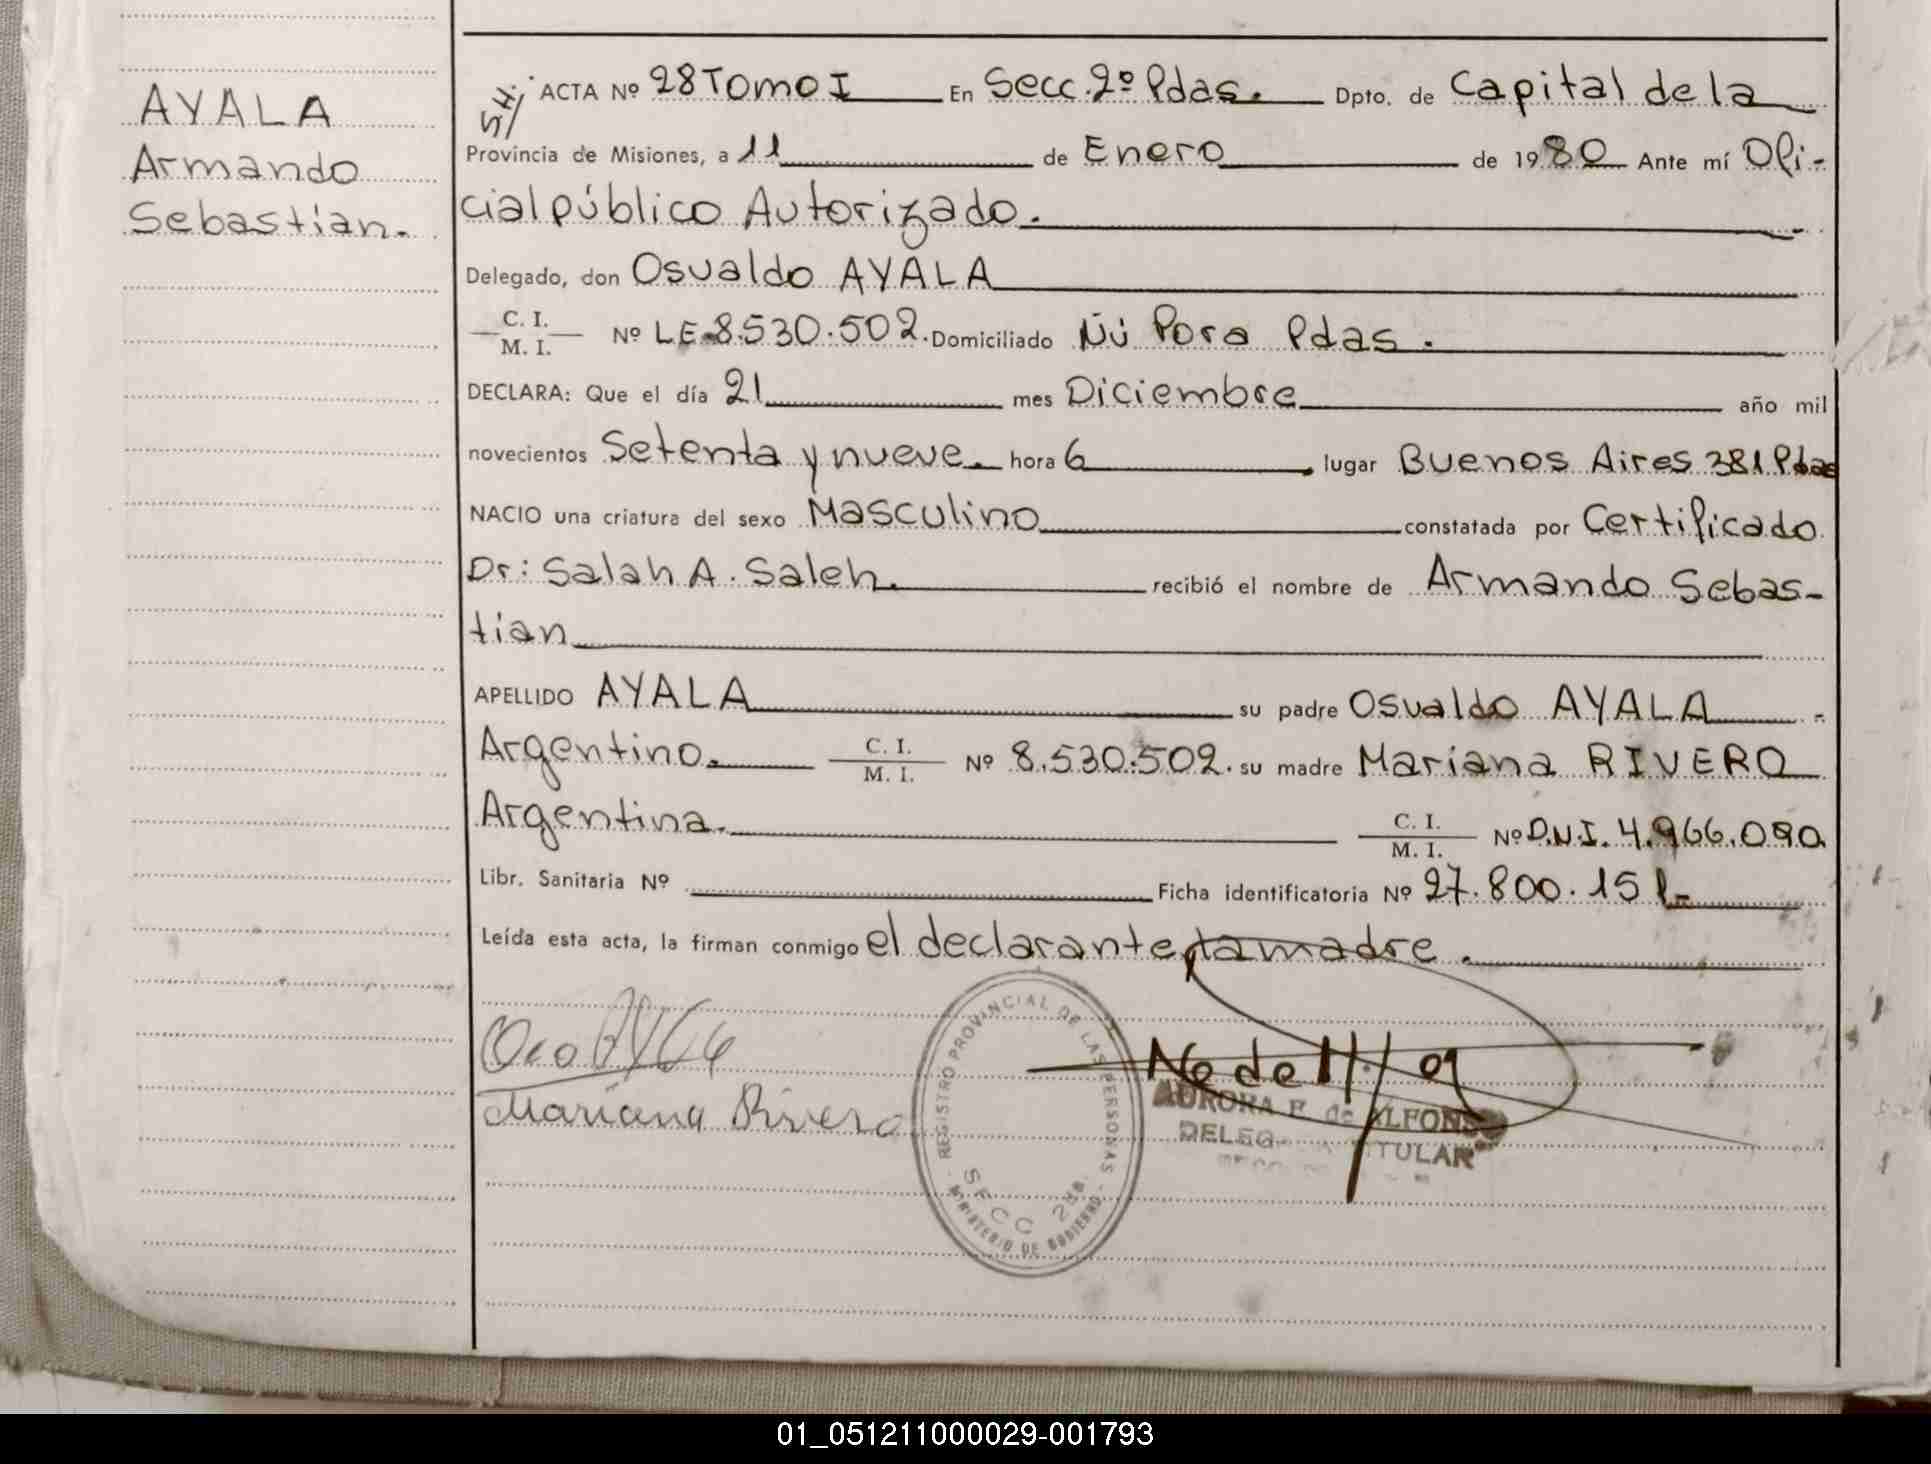 AYALA
Armando
Sebastian.
S/H.
ACTA Nº 28 Tomo I En Secc. 2º Pdas. Dpto. de Capital de la
Provincia de Misiones, a 11 de Enero de 1980 Ante mí Ofi-
cial público Autorizado.
Delegado, don Osvaldo AYALA
C. I.
M. I. Nº L.E. 8.530.502. Domiciliado Ñú Pora Pdas.
DECLARA: Que el día 21 mes Diciembre año mil
novecientos Setenta y nueve. hora 6 lugar Buenos Aires 381 Pdas
NACIO una criatura del sexo Masculino constatada por Certificado
Dr: Salah A. Saleh. recibió el nombre de Armando Sebas-
tian
APELLIDO AYALA su padre Osvaldo AYALA
Argentino. C. I.
M. I. Nº 8.530.502. su madre Mariana RIVERO
Argentina. C. I.
M. I. Nº D.N.I. 4.966.090
Libr. Sanitaria Nº Ficha identificatoria Nº 27.800.151-
Leída esta acta, la firman conmigo el declarante la madre.
Mariana Rivero
REGISTRO PROVINCIAL DE LAS PERSONAS
SECC 2da.
MINISTERIO DE GOBIERNO
AURORA de ALFONS
TITULAR
01_051211000029-001793